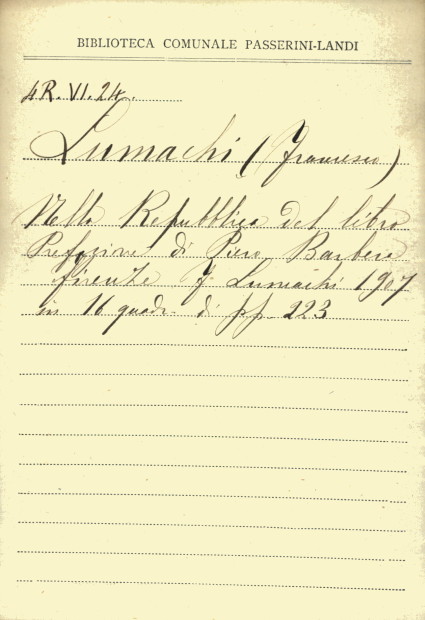 BIBLIOTECA COMUNALE PASSERINI-LANDI
4R.VI.24.
Lumachi (Francesco)
Nella Repubblica del libro
Prefazione di Piero Barbera
Firenze F. Lumachi 1907
in 16 quadr. di pp. 223